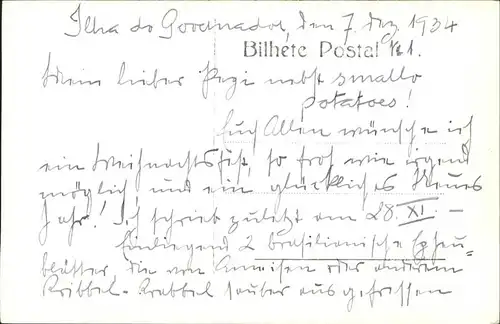 Ilha do Governador, den 7. Dez 1934
Bilhete Postal No 1.
Mein lieber Pegi nebst smallo
potatoes!
Euch Allen wünsche ich
ein Weihnachtsfest, so froh wie irgend
möglich und ein glückliches Neues
Jahr! Ich schrieb zuletzt am 28. XI. –
Einliegend 2 brasilianische Epheu-
blätter, die von Ameisen oder anderem
Kribbel-Krabbel sauber ausgefressen